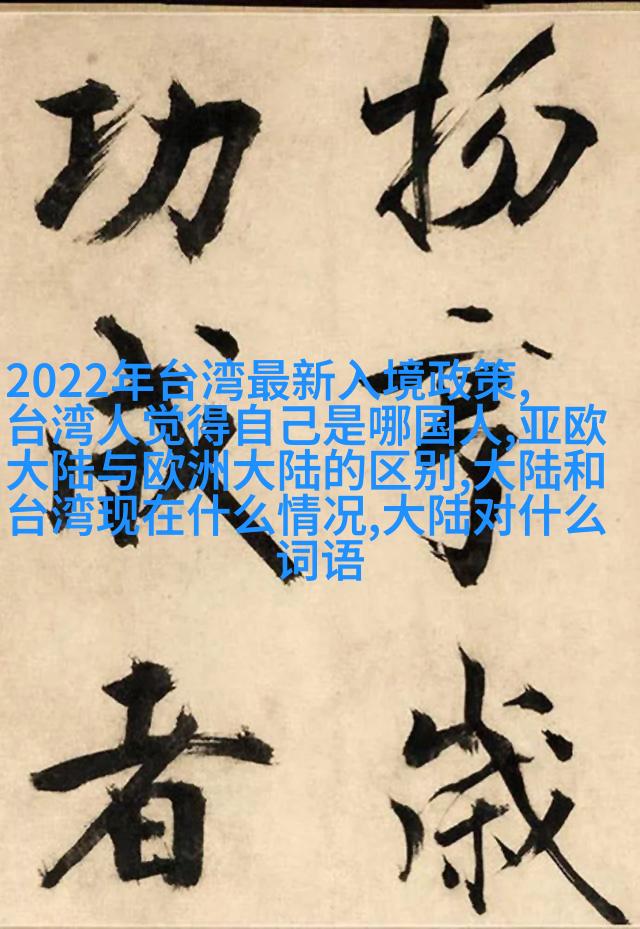 2022年台湾最新入境政策,
台湾人觉得自己是哪国人,亚欧
大陆与欧洲大陆的区别,大陆和
台湾现在什么情况,大陆对什么
词语
歲
功成者